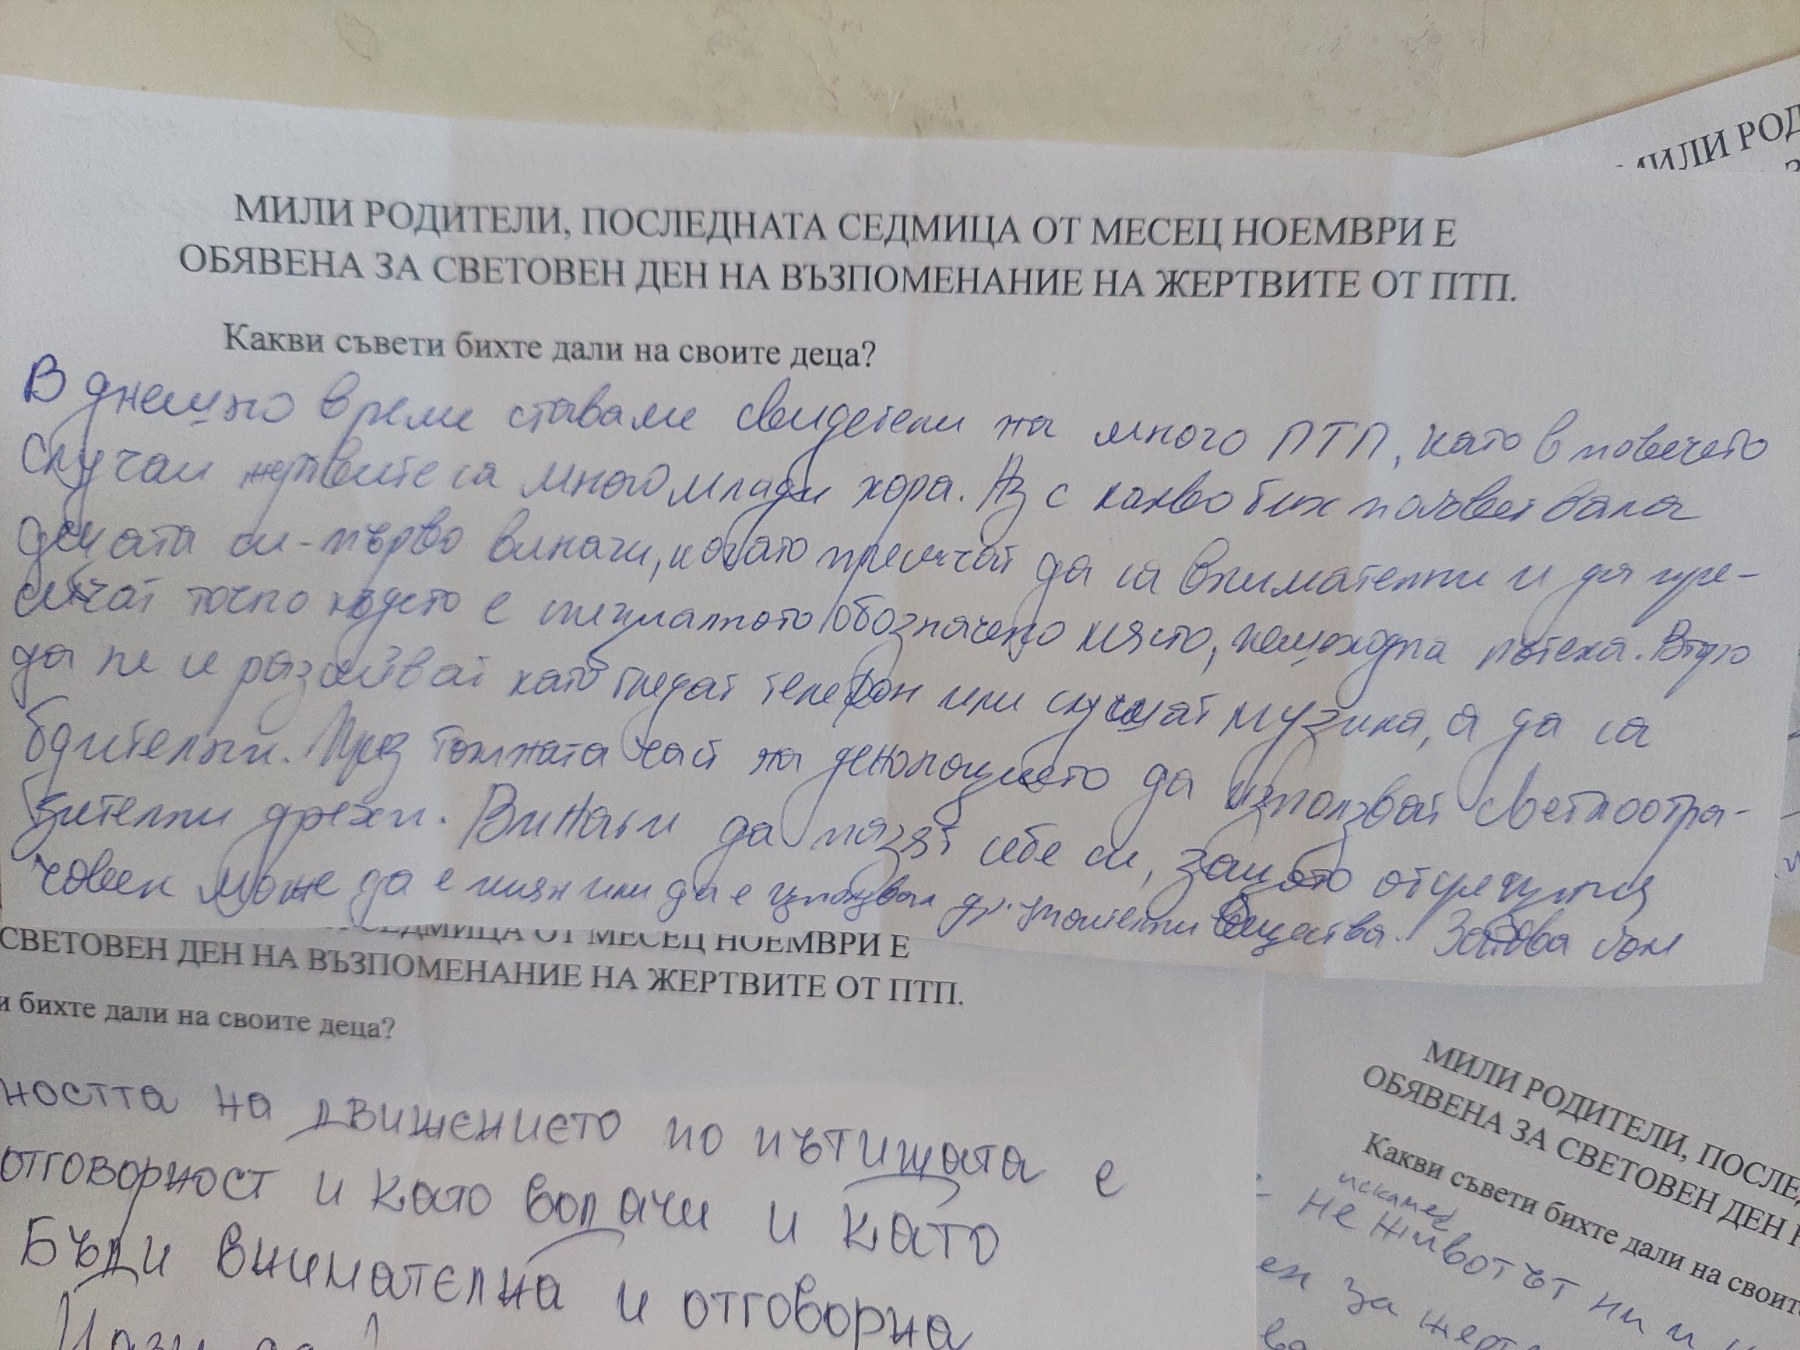 МИЛИ РОД
МИЛИ РОДИТЕЛИ, ПОСЛЕДНАТА СЕДМИЦА ОТ МЕСЕЦ НОЕМВРИ Е
ОБЯВЕНА ЗА СВЕТОВЕН ДЕН НА ВЪЗПОМЕНАНИЕ НА ЖЕРТВИТЕ ОТ ПТП.
Какви съвети бихте дали на своите деца?
В днешно време ставаме свидетели на много ПТП, като в повечето
случаи жертвите са много млади хора. Аз с какво бих посъветвала
децата си - първо винаги, когато пресичат да са внимателни и да пре-
сичат точно където е специалното обозначено място, пешеходна пътека. Второ
да не се разсейват като гледат телефон или слушат музика, а да са
бдителни. През тъмната част на денонощието да използват светлоотра-
зителни дрехи. Винаги да пазят себе си, защото отсрещния
човек може да е пиян или да е употребявал др. упоителни вещества. Затова съм
СЕДМИЦА ОТ МЕСЕЦ НОЕМВРИ Е
СВЕТОВЕН ДЕН НА ВЪЗПОМЕНАНИЕ НА ЖЕРТВИТЕ ОТ ПТП.
и бихте дали на своите деца?
ността на движението по пътищата е
отговорност и като водачи и като
Бъди внимателна и отговорна
Пази се!
МИЛИ РОДИТЕЛИ, ПОСЛЕД
ОБЯВЕНА ЗА СВЕТОВЕН ДЕН Н
Какви съвети бихте дали на своите
искаме
Не животът ни и
ен за жерт